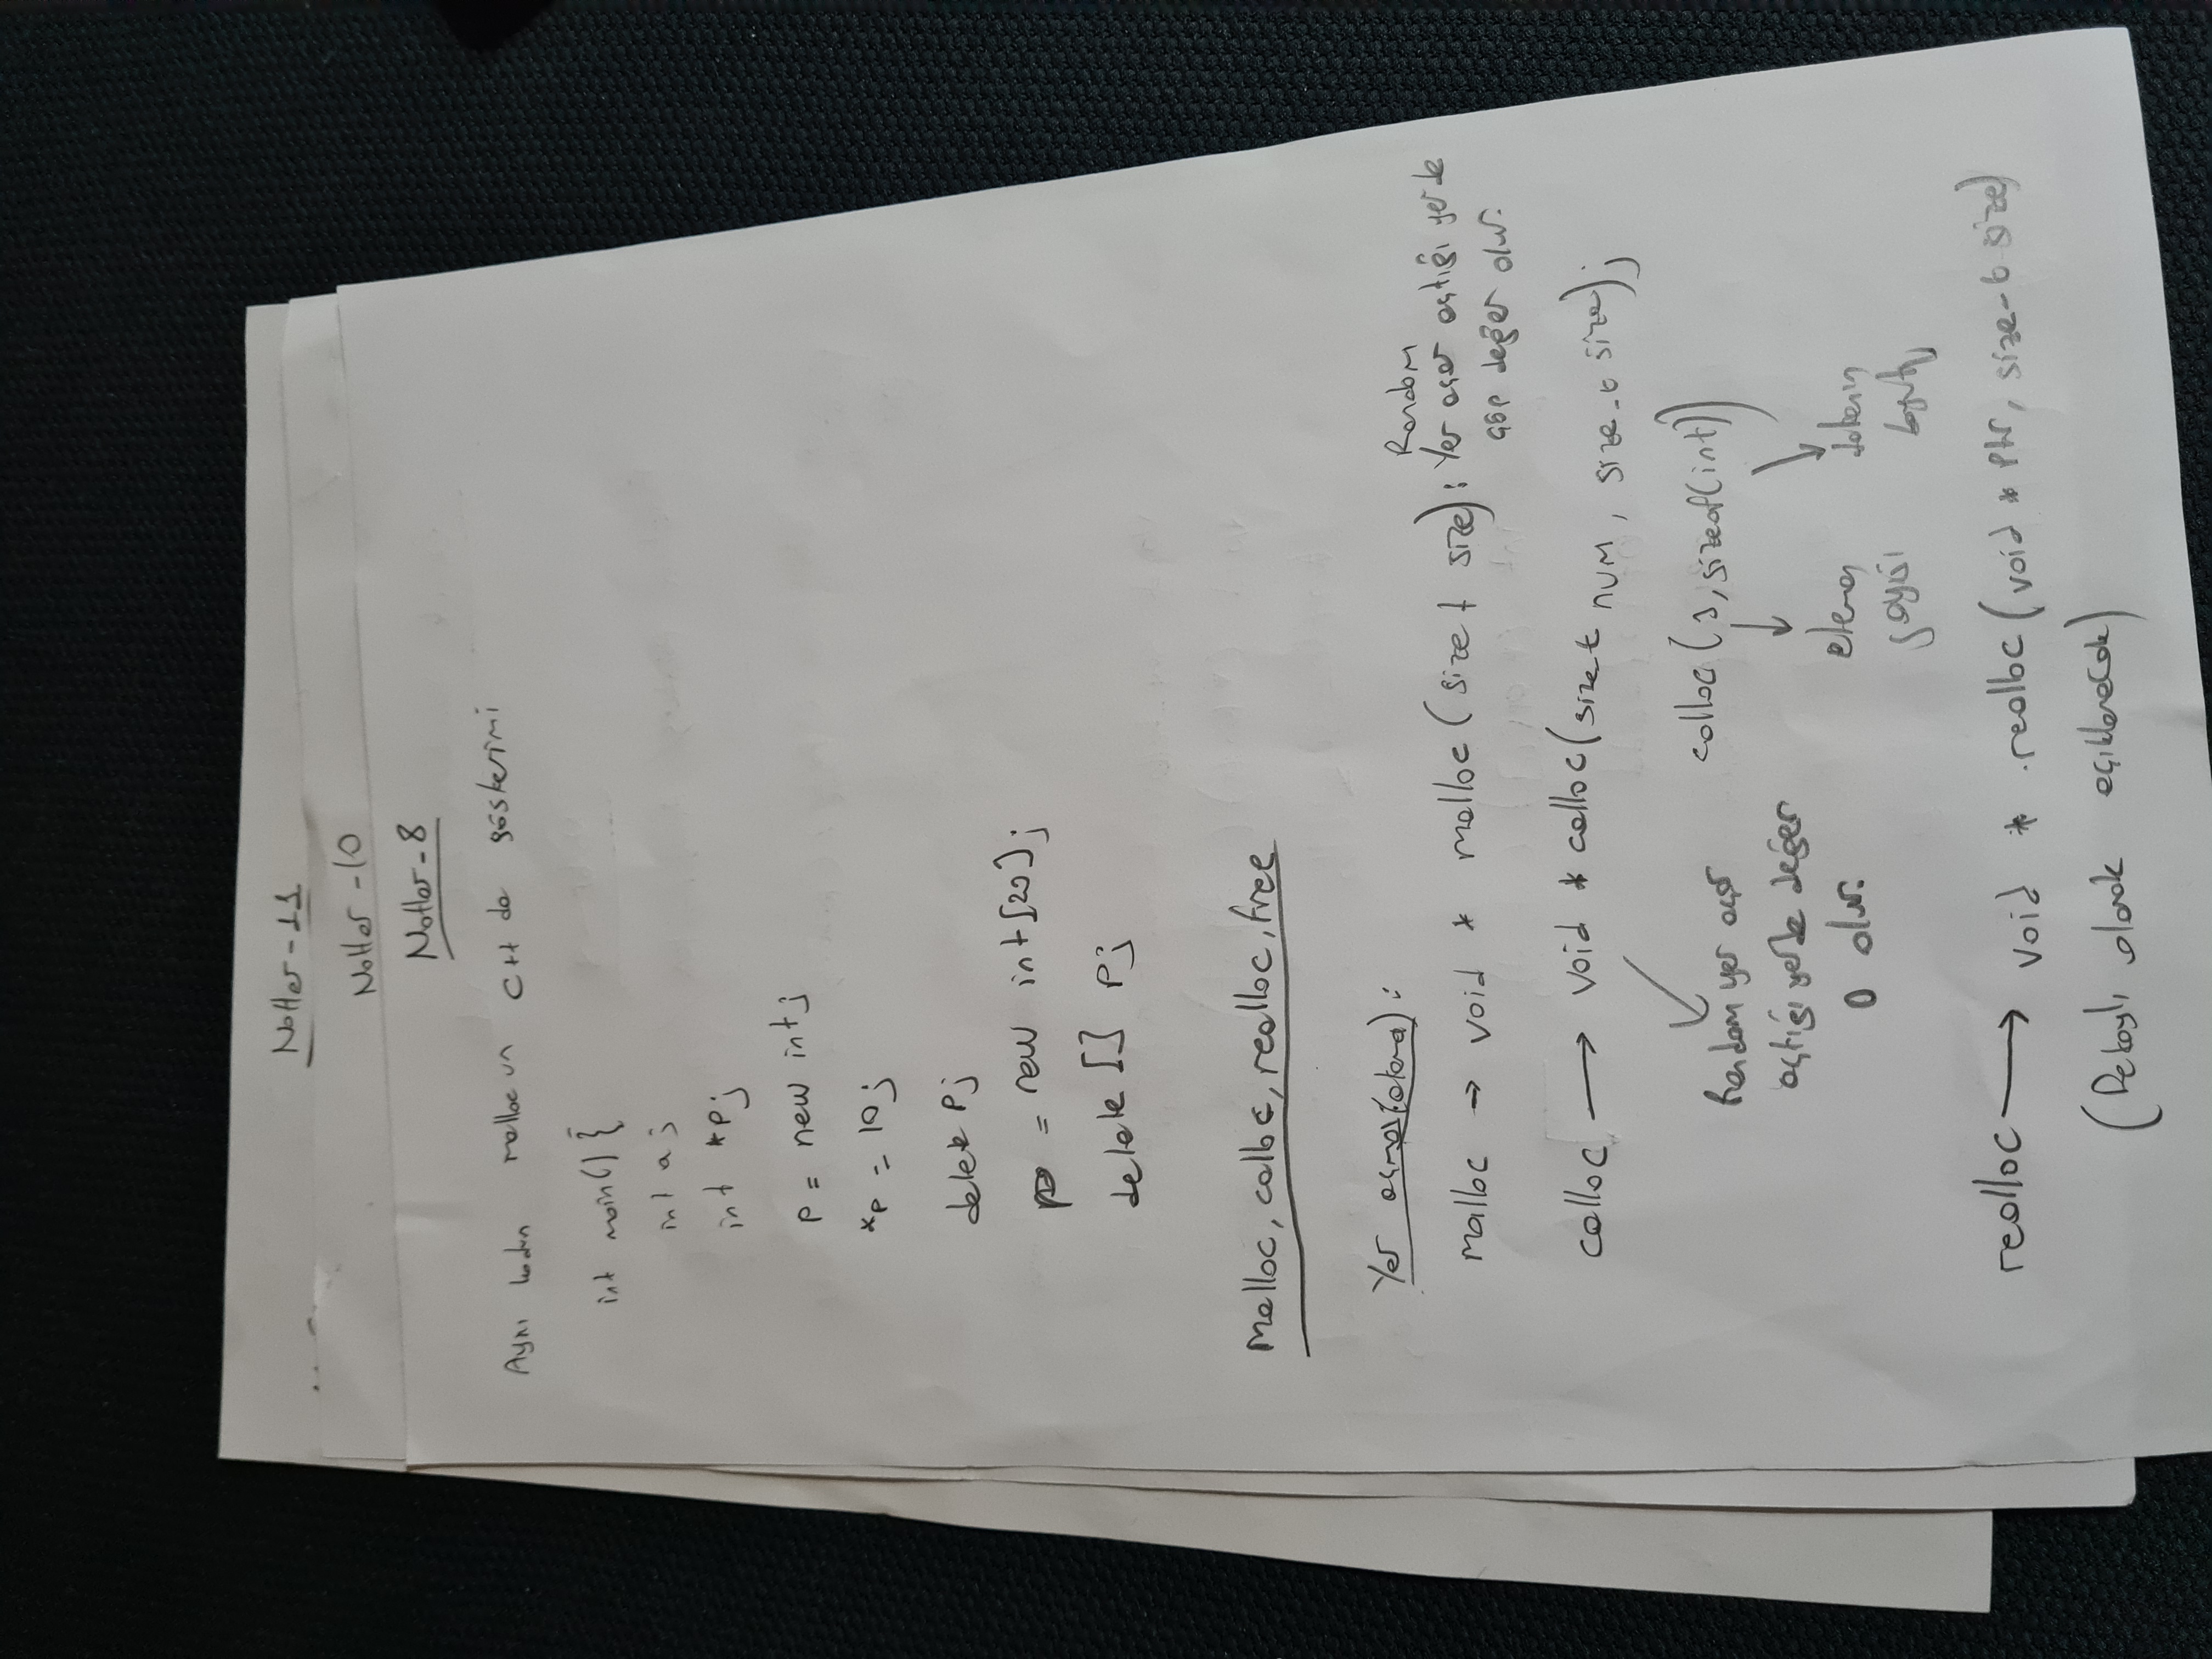 Notlar-11
Notlar-10
Notlar-8
Aynı kodun mallocun C++ da gösterimi
int main() {
int a;
int *p;
p = new int;
*p = 10;
delete p;
p = new int[20];
delete [] p;
Malloc, calloc, realloc, free
Yer açma(atama):
Random
malloc → void * malloc (size t size): Yer açar açtığı yerde
çöp değer olur.
calloc → void * calloc(size t num, size_t size);
calloc ( , sizeof(int))
Random yer açar
açtığı yerde değer
0 olur.
eleman
sayısı
realloc → void * realloc (void * ptr, size_t size)
(Detaylı olarak açıklanacak)